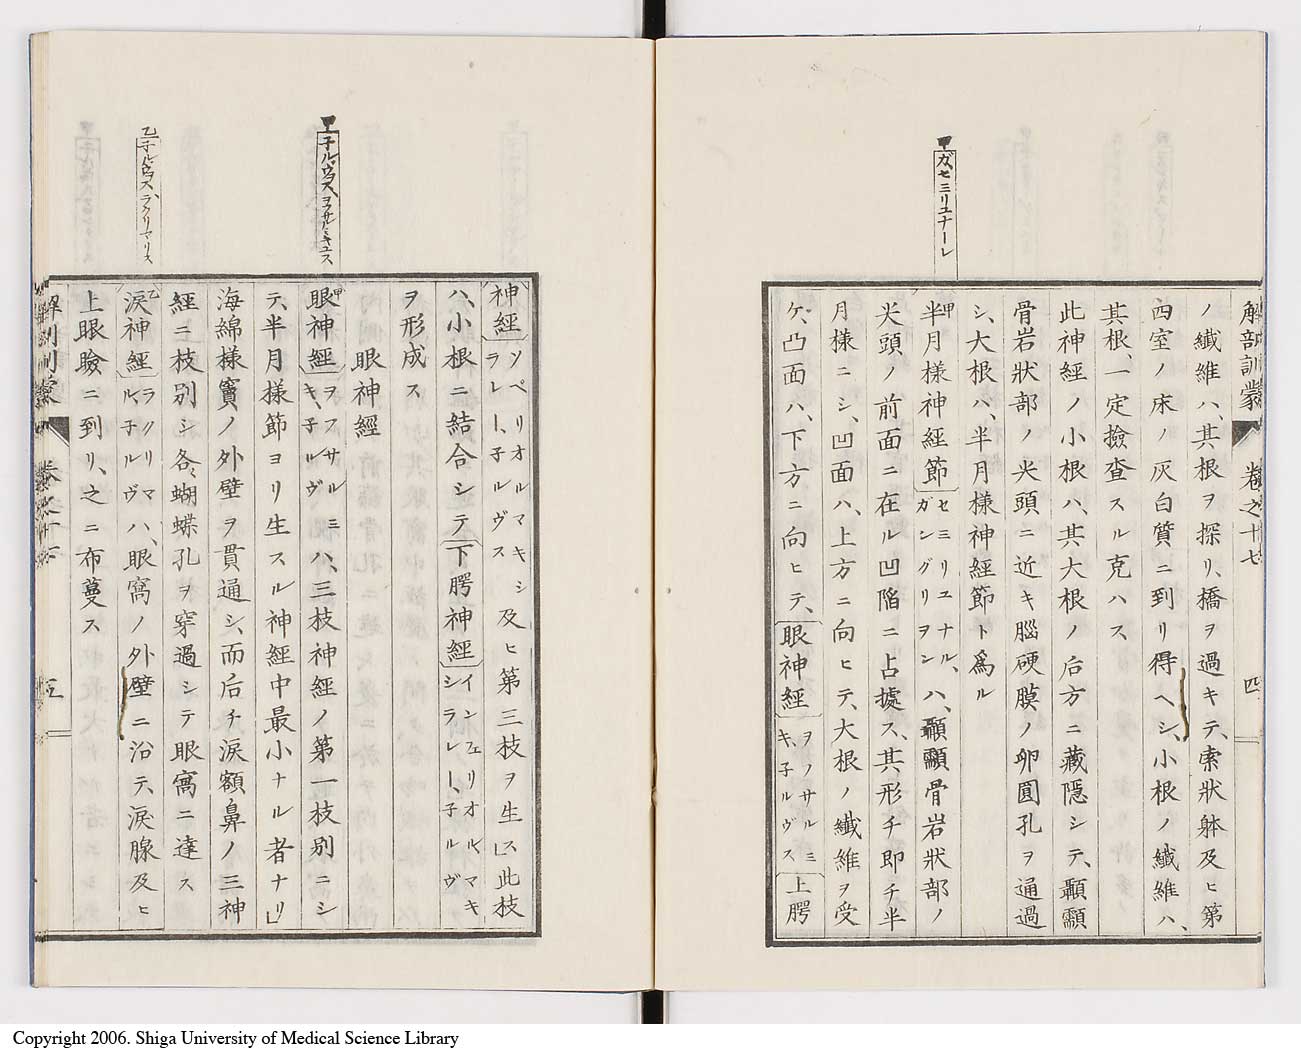 甲 ガ、セミリユナーレ
解部訓蒙 卷之十七 四
ノ纖維ハ、其根ヲ探リ、橋ヲ過キテ、索狀躰及ヒ第
四室ノ床ノ灰白質ニ到リ得ヘシ、小根ノ纖維ハ、
其根、一定撿査スル克ハス、
此神經ノ小根ハ、其大根ノ后方ニ藏隠シテ、顳顬
骨岩狀部ノ尖頭ニ近キ腦硬膜ノ卵圓孔ヲ通過
シ、大根ハ、半月樣神經節ト爲ル
甲半月樣神經節 セミリユナル、ガングリヲン ハ、顳顬骨岩狀部ノ
尖頭ノ前面ニ在ル凹陷ニ占據ス、其形チ即チ半
月樣ニシ、凹面ハ、上方ニ向ヒテ、大根ノ纖維ヲ受
ケ、凸面ハ、下方ニ向ヒテ、眼神經 ヲノサルミキ、子ルヴス 上腭
甲 子ルヴス、ヲフサルミキユス
乙 子ルヴス、ラクリマリス
神經 ソペリオルマキシラレー、子ルヴス 及ヒ第三枝ヲ生ス」此枝
ハ、小根ニ結合シテ下腭神經 インフェリオルマキシラレー、子ルヴ
ヲ形成ス
眼神經
甲眼神經 ヲフサルミキ、子ルヴ ハ、三枝神經ノ第一枝別ニシ
テ、半月樣節ヨリ生スル神經中最小ナル者ナリ」
海綿樣竇ノ外壁ヲ貫通シ、而后チ淚額鼻ノ三神
經ニ枝別シ各〻蝴蝶孔ヲ穿過シテ眼窩ニ達ス
乙淚神經 ラクリマル、子ルヴ ハ、眼窩ノ外壁ニ沿テ、淚腺及ヒ
上眼瞼ニ到リ、之ニ布蔓ス
Copyright 2006. Shiga University of Medical Science Library